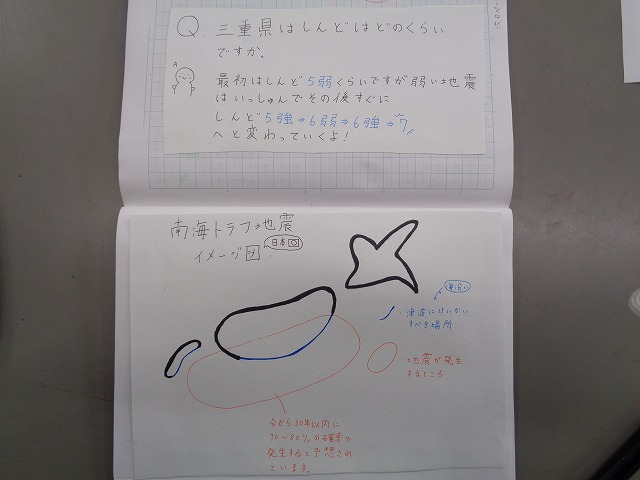 Q. 三重県はしんどはどのくらい
ですか。
A
最初はしんど5弱くらいですが弱い地震
はいっしゅんでその後すぐに
しんど5強⇒6弱⇒6強⇒7
へと変わっていくよ!
南海トラフ地震
イメージ図
日本
海沿い
・津波にけいかい
すべき場所
・地震が発生
するところ
今から30年以内に
70〜80%の確率で
発生すると予想され
ています。